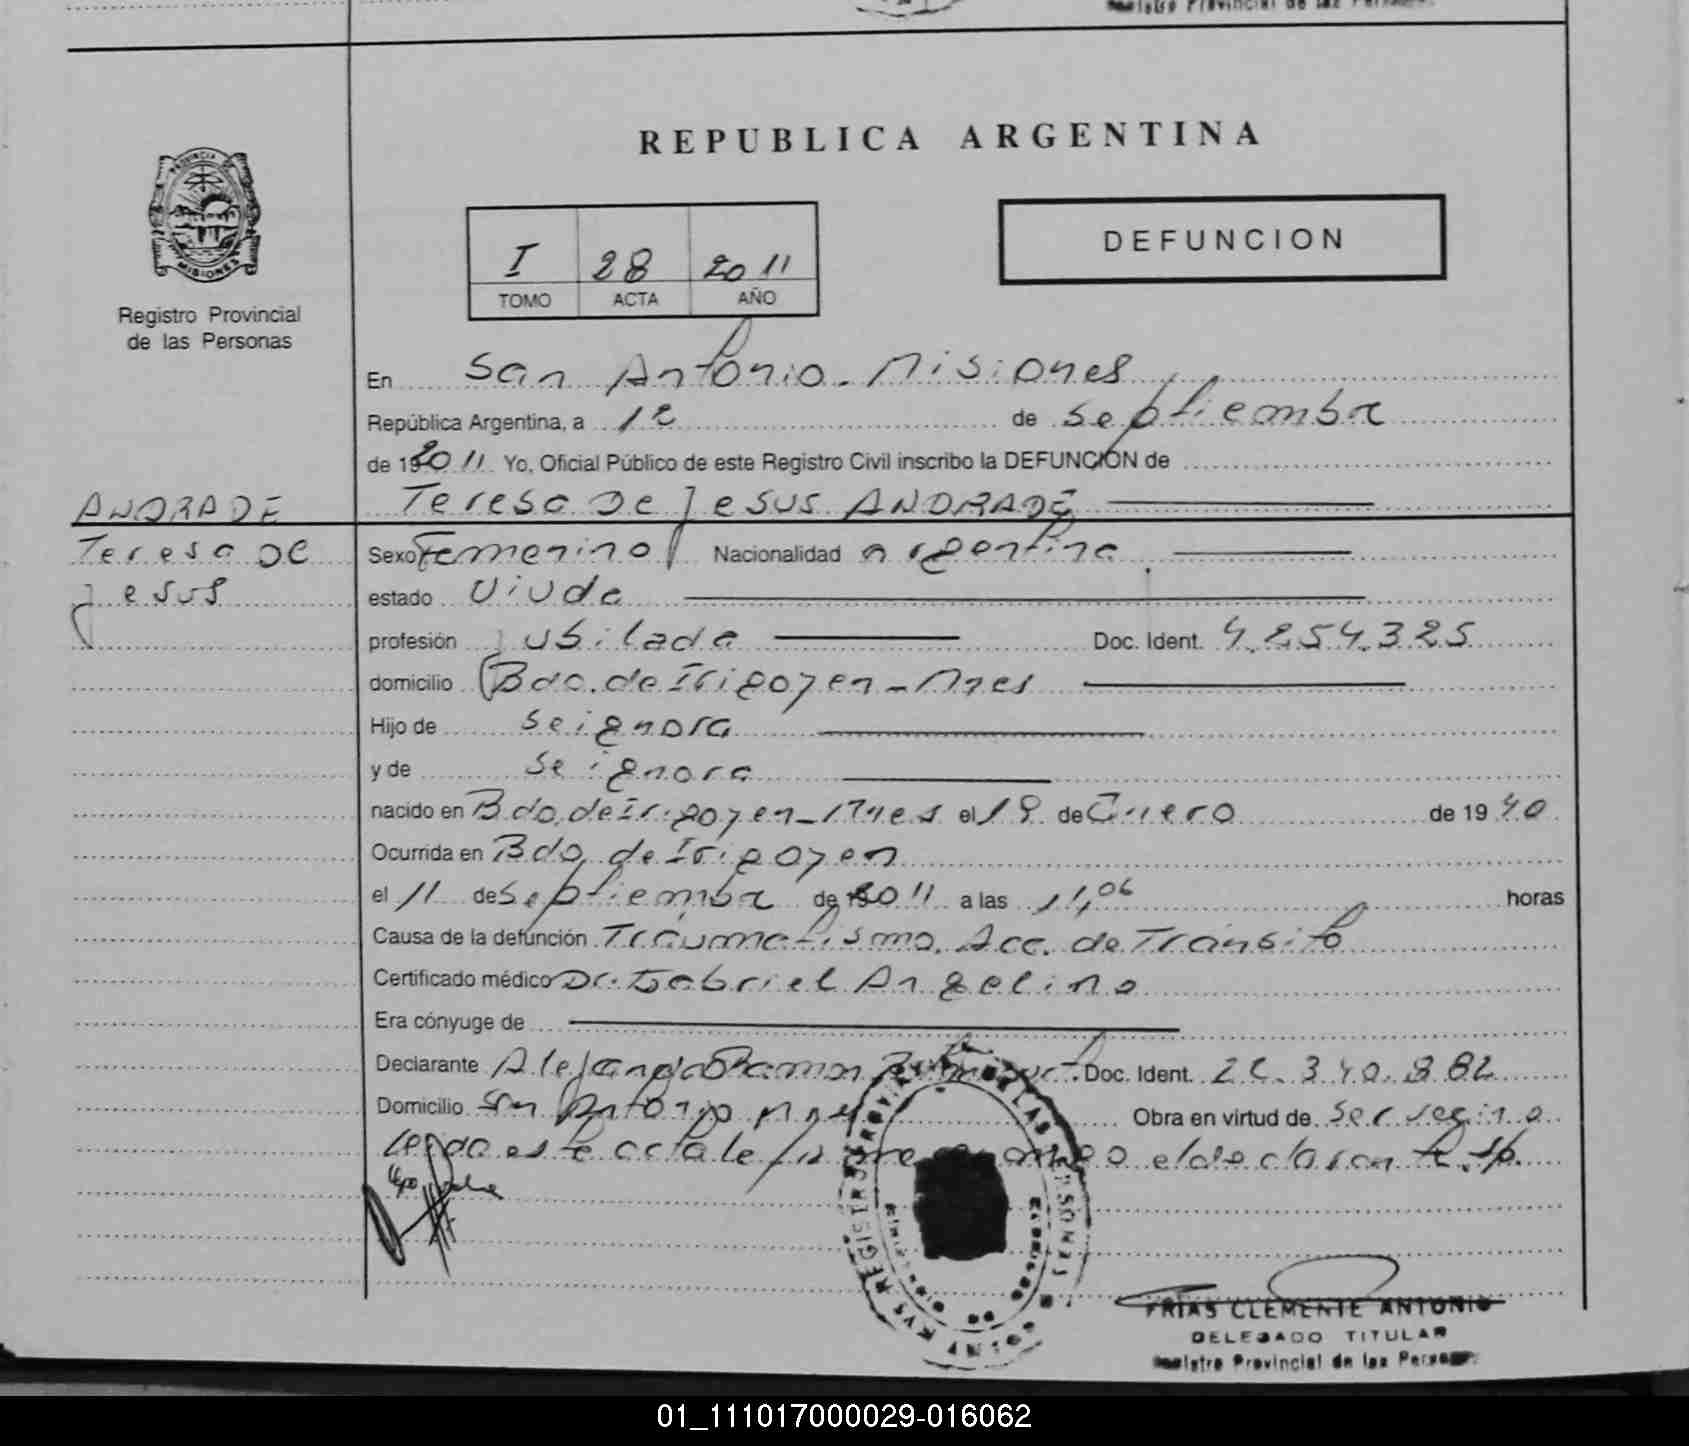 REPUBLICA ARGENTINA
PROVINCIA DE
MISIONES
Registro Provincial
de las Personas
I 28 2011
TOMO ACTA AÑO
DEFUNCION
En San Antonio - Misiones
República Argentina, a 12 de Septiembre
de 19 2011 Yo, Oficial Público de este Registro Civil inscribo la DEFUNCIÓN de
Teresa De Jesus ANDRADE
ANDRADE
Teresa De
Jesus
Sexo Femenino Nacionalidad argentina
estado Viuda
profesión Jubilada Doc. Ident. 4.254.325
domicilio Bdo. de Irigoyen - Mnes
Hijo de Se ignora
y de Se ignora
nacido en Bdo. de Irigoyen - Mnes el 19 de Enero de 19 40
Ocurrida en Bdo. de Irigoyen
el 11 de Septiembre de 2011 a las 11,06 horas
Causa de la defunción Traumatismo. Acc. de Tránsito
Certificado médico Dr. Gabriel Angelino
Era cónyuge de
Declarante Alejandro Ramon Doc. Ident. 340.882
Domicilio San Antonio Mnes Obra en virtud de Ser vecino
Leida este acta le firma el declarante
FRIAS CLEMENTE ANTONIO
DELEGADO TITULAR
Registro Provincial de las Personas
01_111017000029-016062